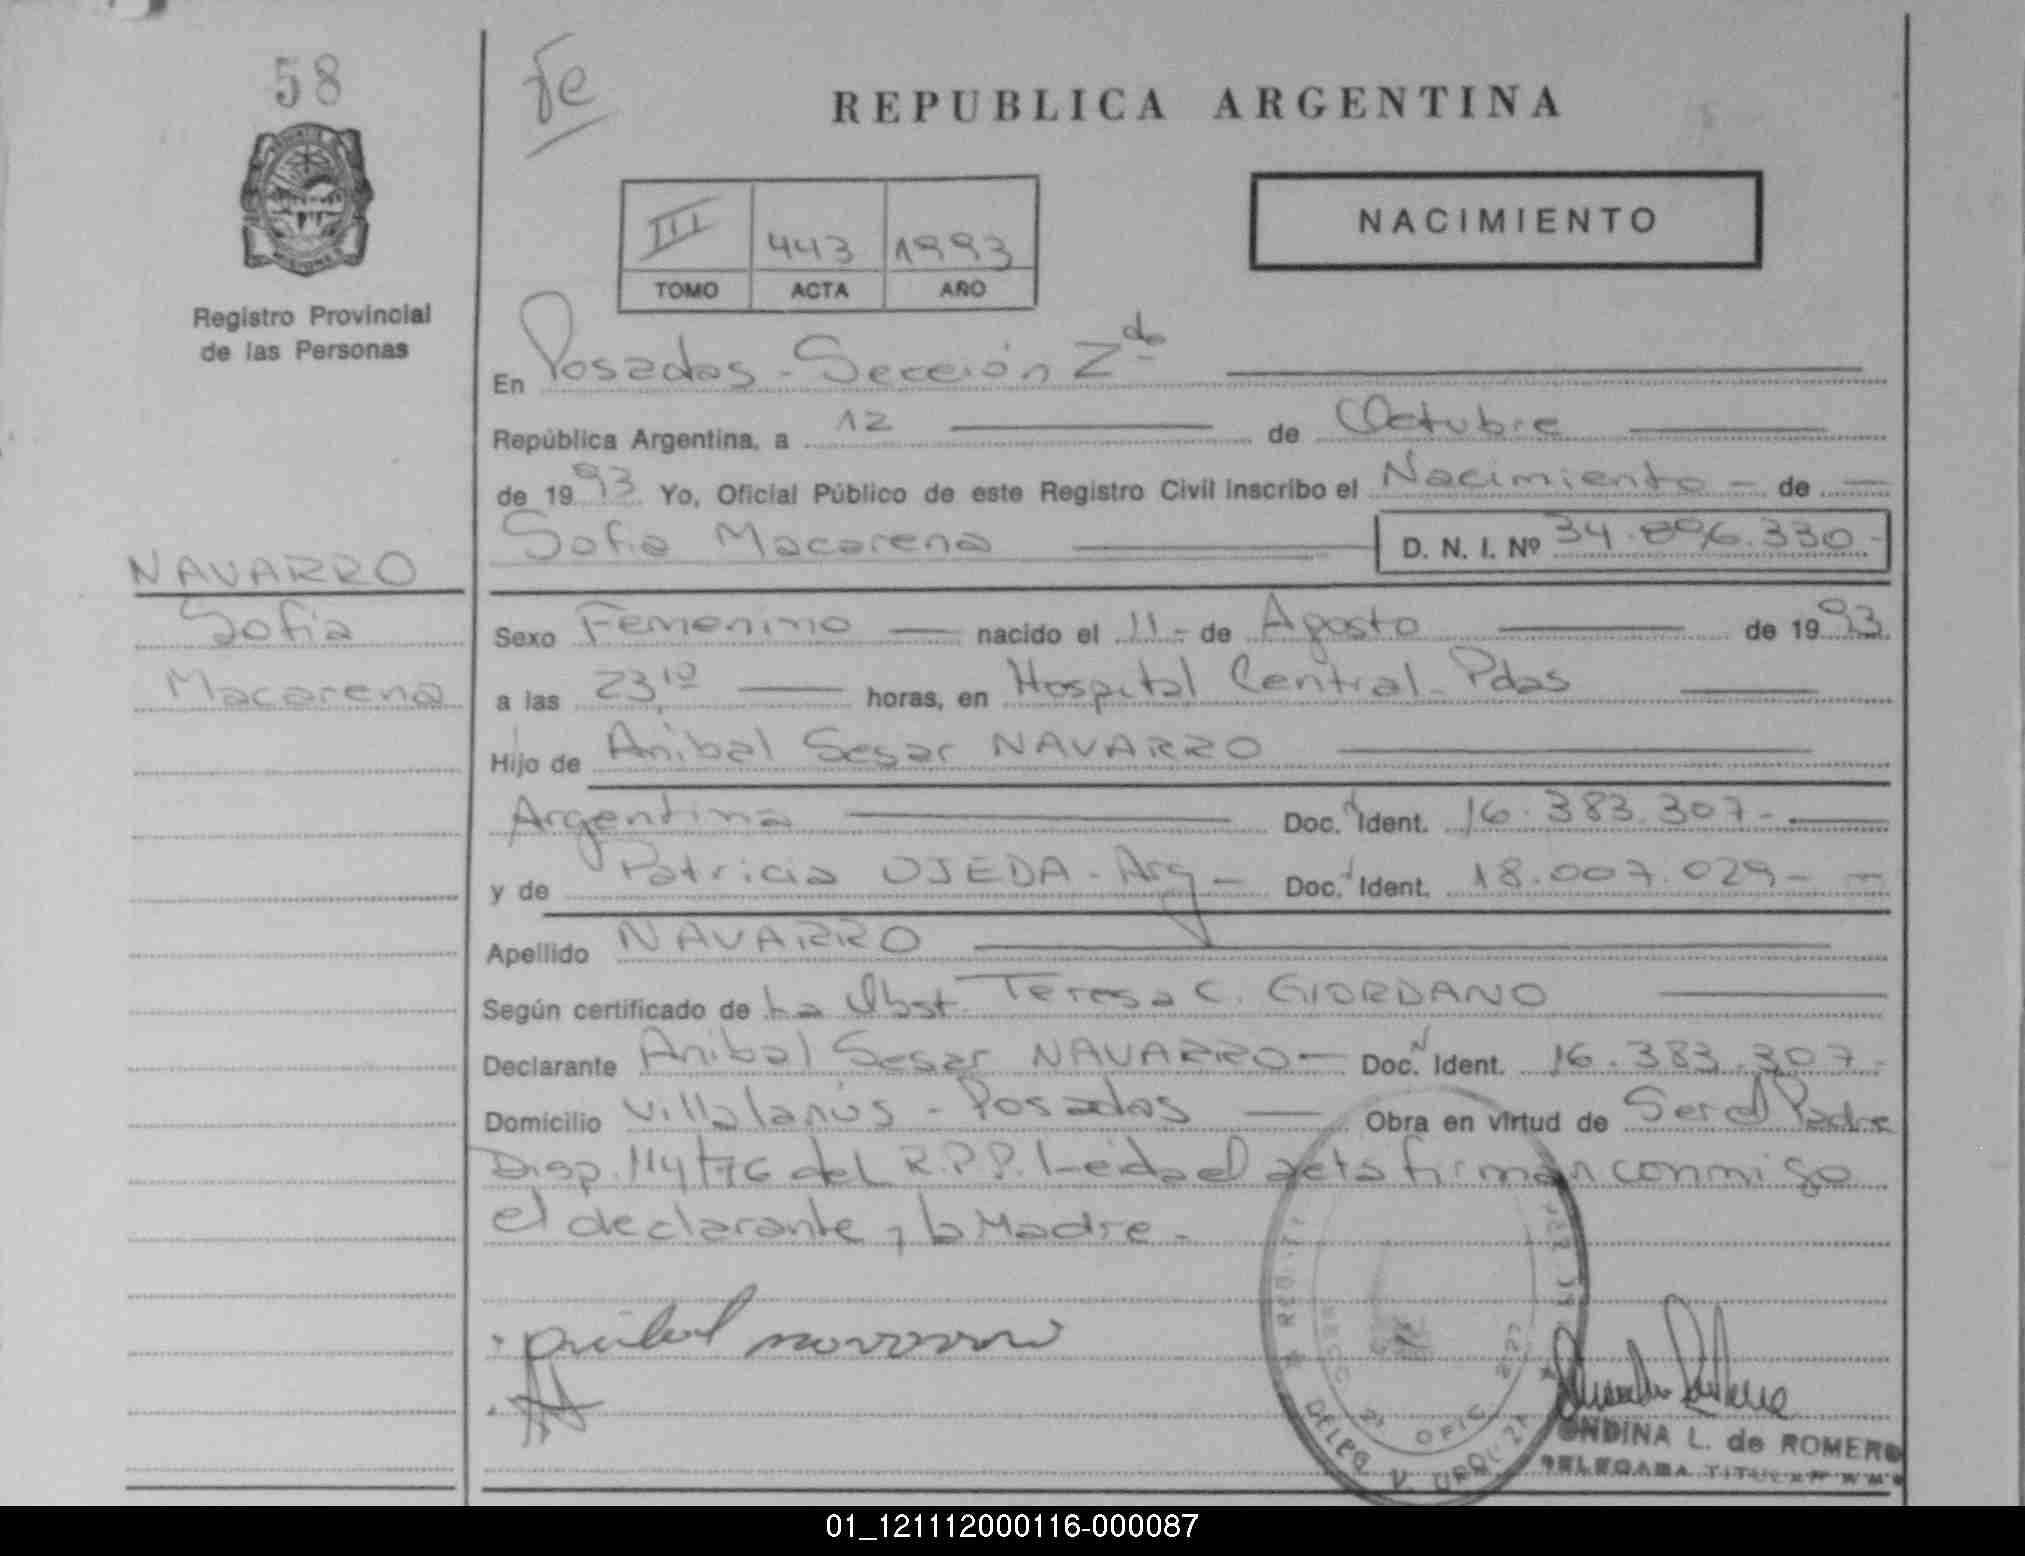 58
Fe
REPUBLICA ARGENTINA
III 443 1993
TOMO ACTA AÑO
NACIMIENTO
Registro Provincial
de las Personas
En Posadas - Sección 2da
República Argentina, a 12 de Octubre
de 1993 Yo, Oficial Público de este Registro Civil inscribo el Nacimiento - de
Sofia Macarena D. N. I. Nº 34.896.330-
NAVARRO
Sofia
Macarena
Sexo Femenino nacido el 11- de Agosto de 1993.
a las 23,10 horas, en Hospital Central - Pdas
Hijo de Anibal Sesar NAVARRO
Argentina Doc. Ident. 16.383.307-
y de Patricia OJEDA - Arg - Doc. Ident. 18.007.029-
Apellido NAVARRO
Según certificado de La Obst. Teresa C. GIORDANO
Declarante Anibal Sesar NAVARRO - Doc. Ident. 16.383.307-
Domicilio Villalanús - Posadas Obra en virtud de Ser el Padre
Disp. 114/76 del R.P.P. Leida el acta firman conmigo
el declarante y la Madre.-
anibal navarro
DELEG V. URQUIZA
OFIC
ONDINA L. de ROMERO
DELEGADA TITULAR
01_121112000116-000087